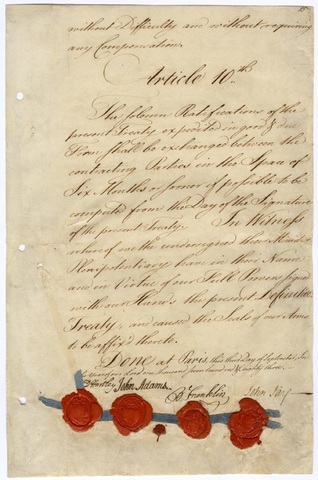 without Difficulty and without requiring
any Compensation.
Article 10th.
The solemn Ratifications of the
present Treaty expedited in good & due
Form shall be exchanged between the
contracting Parties in the Space of
Six Months or sooner if possible to be
computed from the Day of the Signature
of the present Treaty. In Witness
whereof we the undersigned their Ministers
Plenipotentiary have in their Name
and in Virtue of our Full Powers signed
with our Hands the present Definitive
Treaty, and caused the Seals of our Arms
to be affix'd thereto.
Done at Paris, this third Day of September, In
the Year of our Lord one thousand seven hundred & eighty three.
D Hartley John Adams. B Franklin John Jay